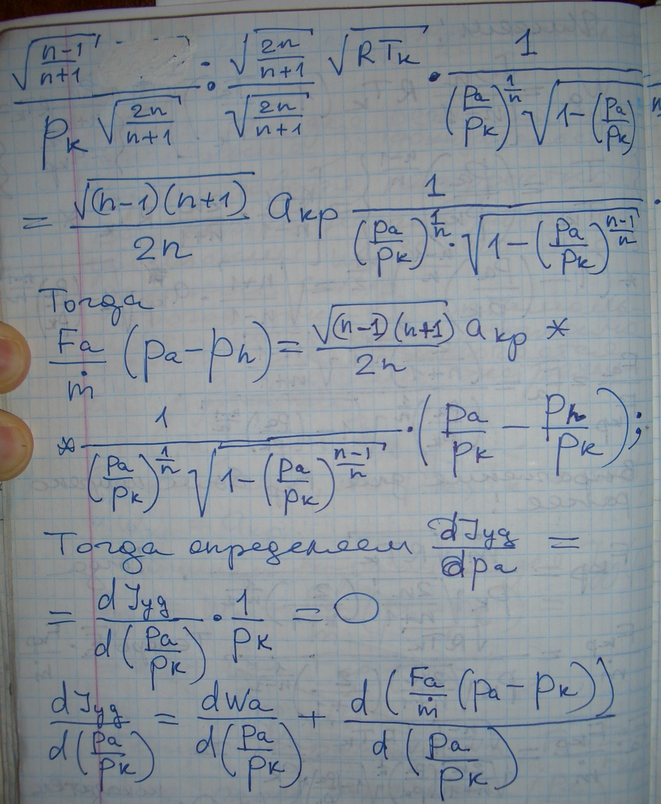 √((n-1)/(n+1)) / (pк √(2n/(n+1))) : √(2n/(n+1)) / √(2n/(n+1)) √(RTк) · 1 / ((pa/pк)^(1/n) √(1-(pa/pк)
= √((n-1)(n+1)) / 2n aкр 1 / ((pa/pк)^(1/n) · √(1-(pa/pк)^((n-1)/n))) ·
Тогда
Fa/ṁ (pa-ph) = √((n-1)(n+1)) / 2n aкр *
* 1 / ((pa/pк)^(1/n) √(1-(pa/pк)^((n-1)/n))) · (pa/pк - ph/pк);
Тогда определяем dJуд/dpa =
= dJуд/d(pa/pк) · 1/pк = 0
dJуд/d(pa/pк) = dWa/d(pa/pк) + d(Fa/ṁ (pa-pк))/d(pa/pк)